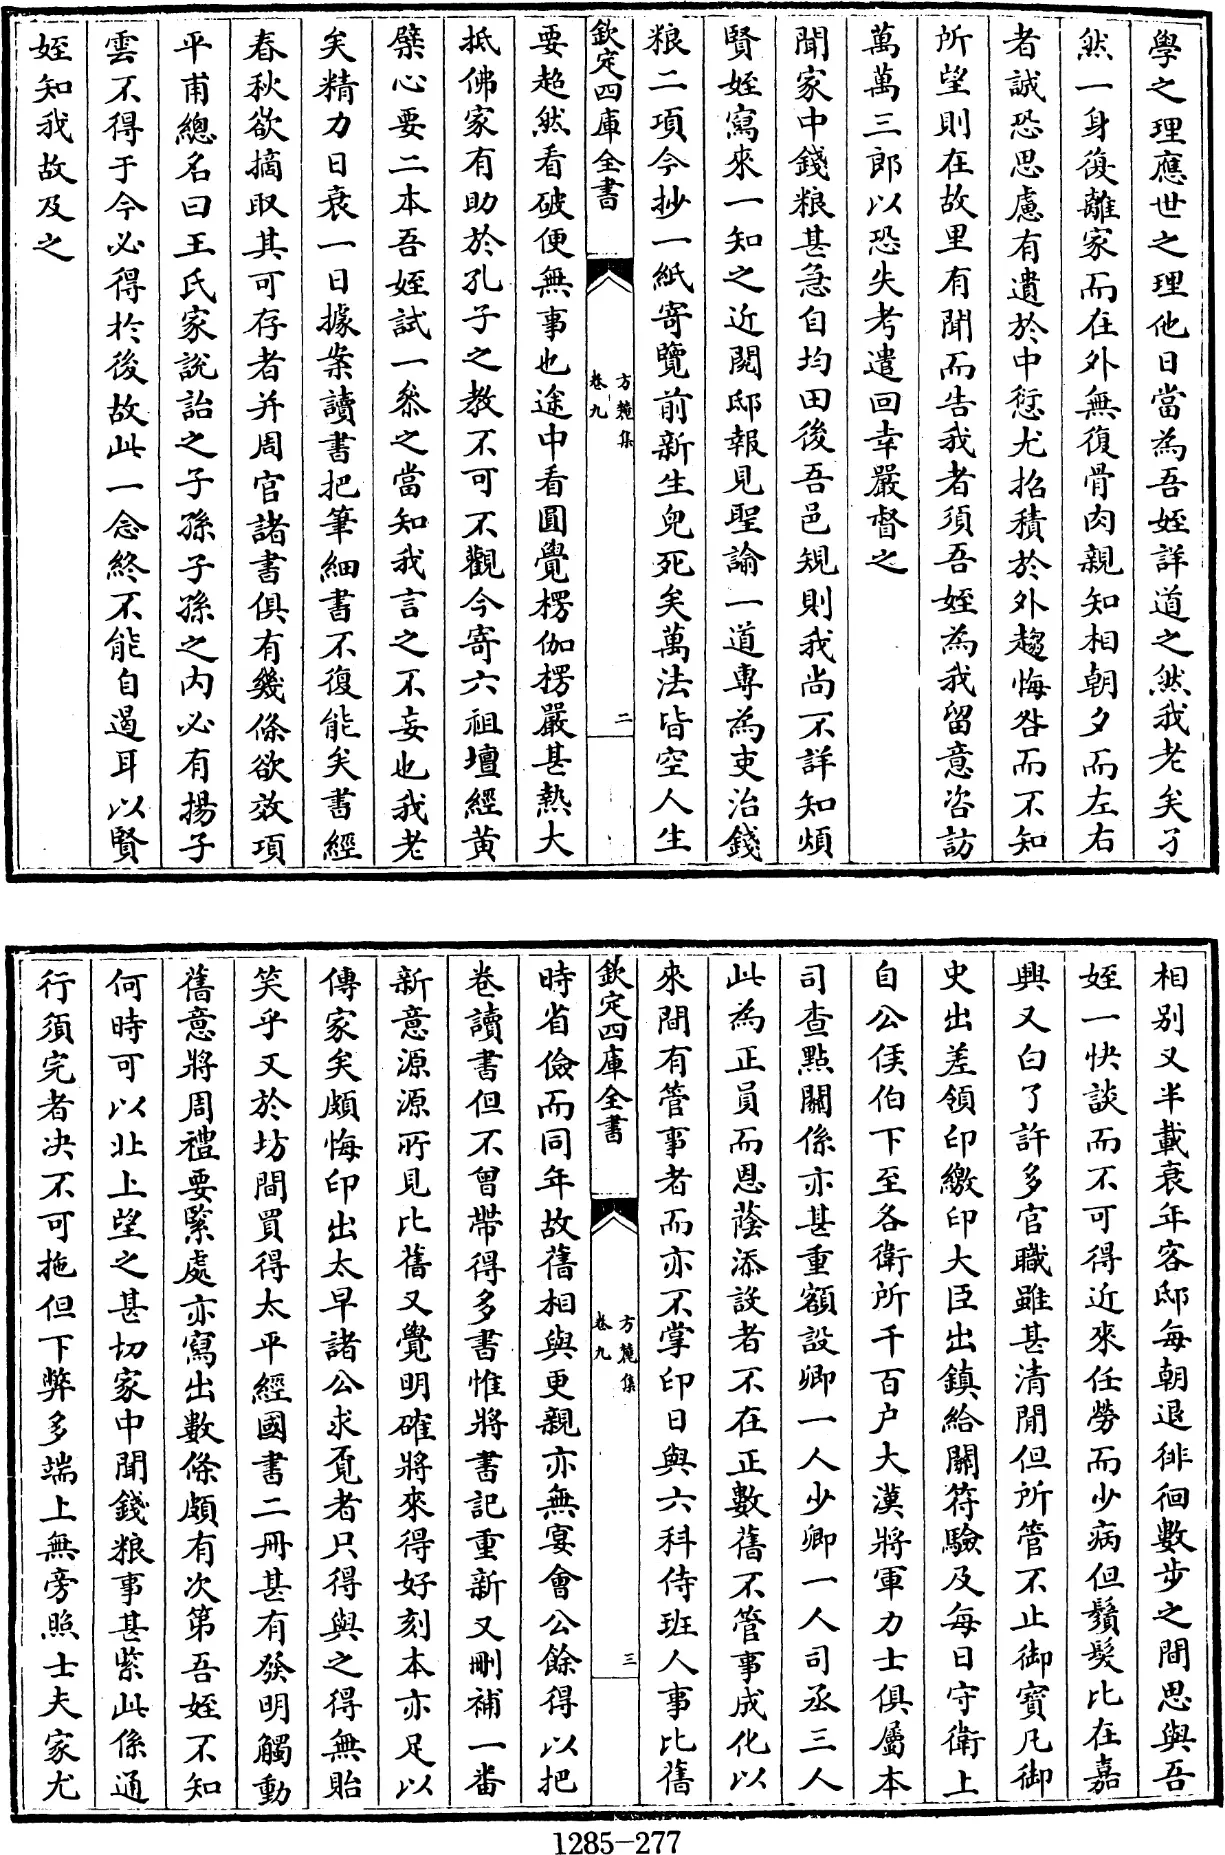 學之理應世之理他日當為吾姪詳道之然我老矣孑
然一身復離家而在外無復骨肉親知相朝夕而左右
者誠恐思慮有遺於中愆尤招積於外趨悔咎而不知
所望則在故里有聞而告我者須吾姪為我留意咨訪
萬萬三郎以恐失考遣回幸嚴督之
聞家中錢粮甚急自均田後吾邑規則我尚不詳知煩
賢姪寫來一知之近閱邸報見聖諭一道專為吏治錢
粮二項今抄一紙寄覽前新生兒死矣萬法皆空人生
欽定四庫全書
方麓集
卷九
二
要超然看破便無事也途中看圓覺楞伽楞嚴甚熱大
抵佛家有助於孔子之教不可不觀今寄六祖壇經黄
檗心要二本吾姪試一叅之當知我言之不妄也我老
矣精力日衰一日據案讀書把筆細書不復能矣書經
春秋欲摘取其可存者并周官諸書俱有幾條欲效項
平甫總名曰王氏家說詒之子孫子孫之内必有揚子
雲不得于今必得於後故此一念終不能自遏耳以賢
姪知我故及之
相別又半載衰年客邸每朝退徘徊數步之間思與吾
姪一快談而不可得近來任勞而少病但鬚髮比在嘉
興又白了許多官職雖甚清閒但所管不止御寶凡御
史出差領印繳印大臣出鎮給關符驗及每日守衛上
自公侯伯下至各衛所千百户大漢將軍力士俱屬本
司查點關係亦甚重額設卿一人少卿一人司丞三人
此為正員而恩蔭添設者不在正數舊不管事成化以
來間有管事者而亦不掌印日與六科侍班人事比舊
欽定四庫全書
方麓集
卷九
三
時省儉而同年故舊相與更親亦無宴會公餘得以把
卷讀書但不曾帶得多書惟將書記重新又刪補一番
新意源源所見比舊又覺明確將來得好刻本亦足以
傳家矣頗悔印出太早諸公求覓者只得與之得無貽
笑乎又於坊間買得太平經國書二冊甚有發明觸動
舊意將周禮要緊處亦寫出數條頗有次第吾姪不知
何時可以北上望之甚切家中聞錢粮事甚紫此係通
行須完者决不可拖但下弊多端上無旁照士夫家尤
1285-277